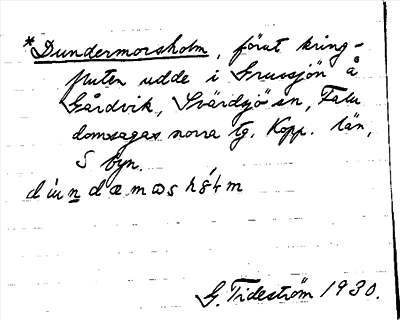 *Dundermorsholm, förut kring-
fluten udde i Grussjön å
Gårdvik, Svärdsjö sn, Falu
domsagas norra tg. Kopp. län,
S byn.
G. Tideström 1930.